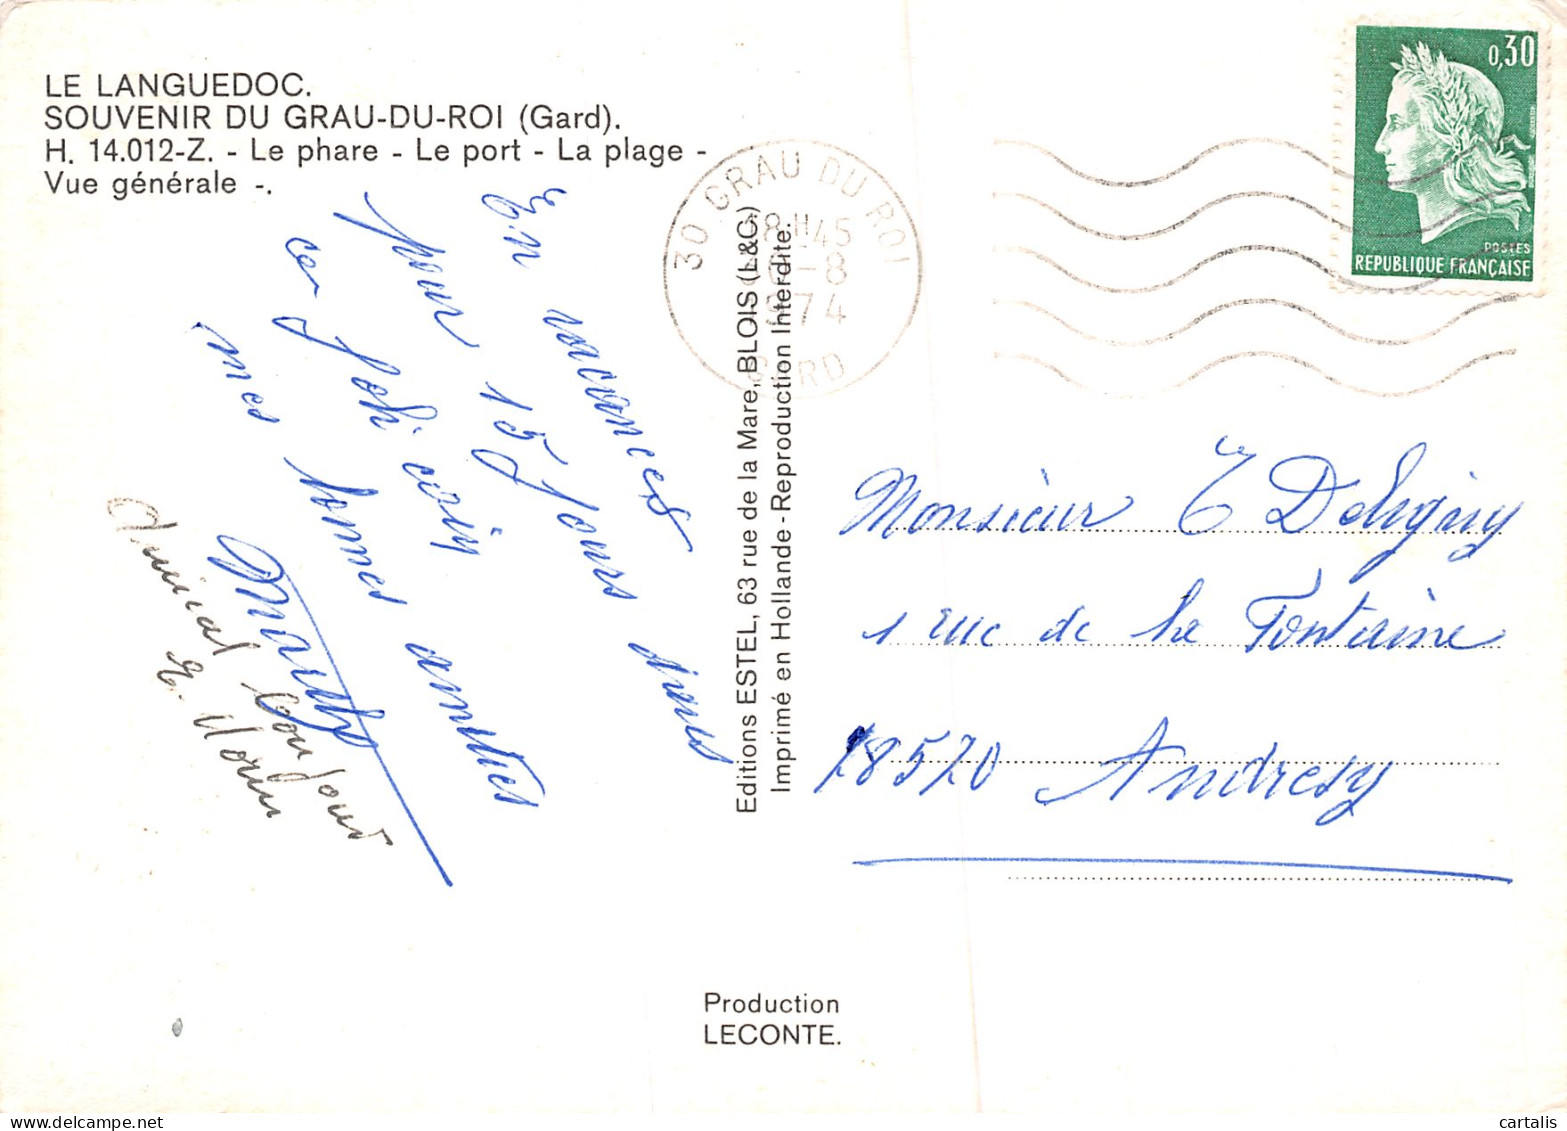 LE LANGUEDOC.
SOUVENIR DU GRAU-DU-ROI (Gard).
H. 14.012-Z. - Le phare - Le port - La plage -
Vue générale -.
En vacances
pour 15 jours dans
ce joli coin
mes bonnes amitiés
Amical bonjour
Editions ESTEL, 63 rue de la Mare, BLOIS (L&C)
Imprimé en Hollande - Reproduction Interdite.
30 GRAU DU ROI
18H45
6-8
1974
GARD
0,30
POSTES
REPUBLIQUE FRANÇAISE
Monsieur
1 rue de la Fontaine
78570 Andresy
Production
LECONTE.
cartalis